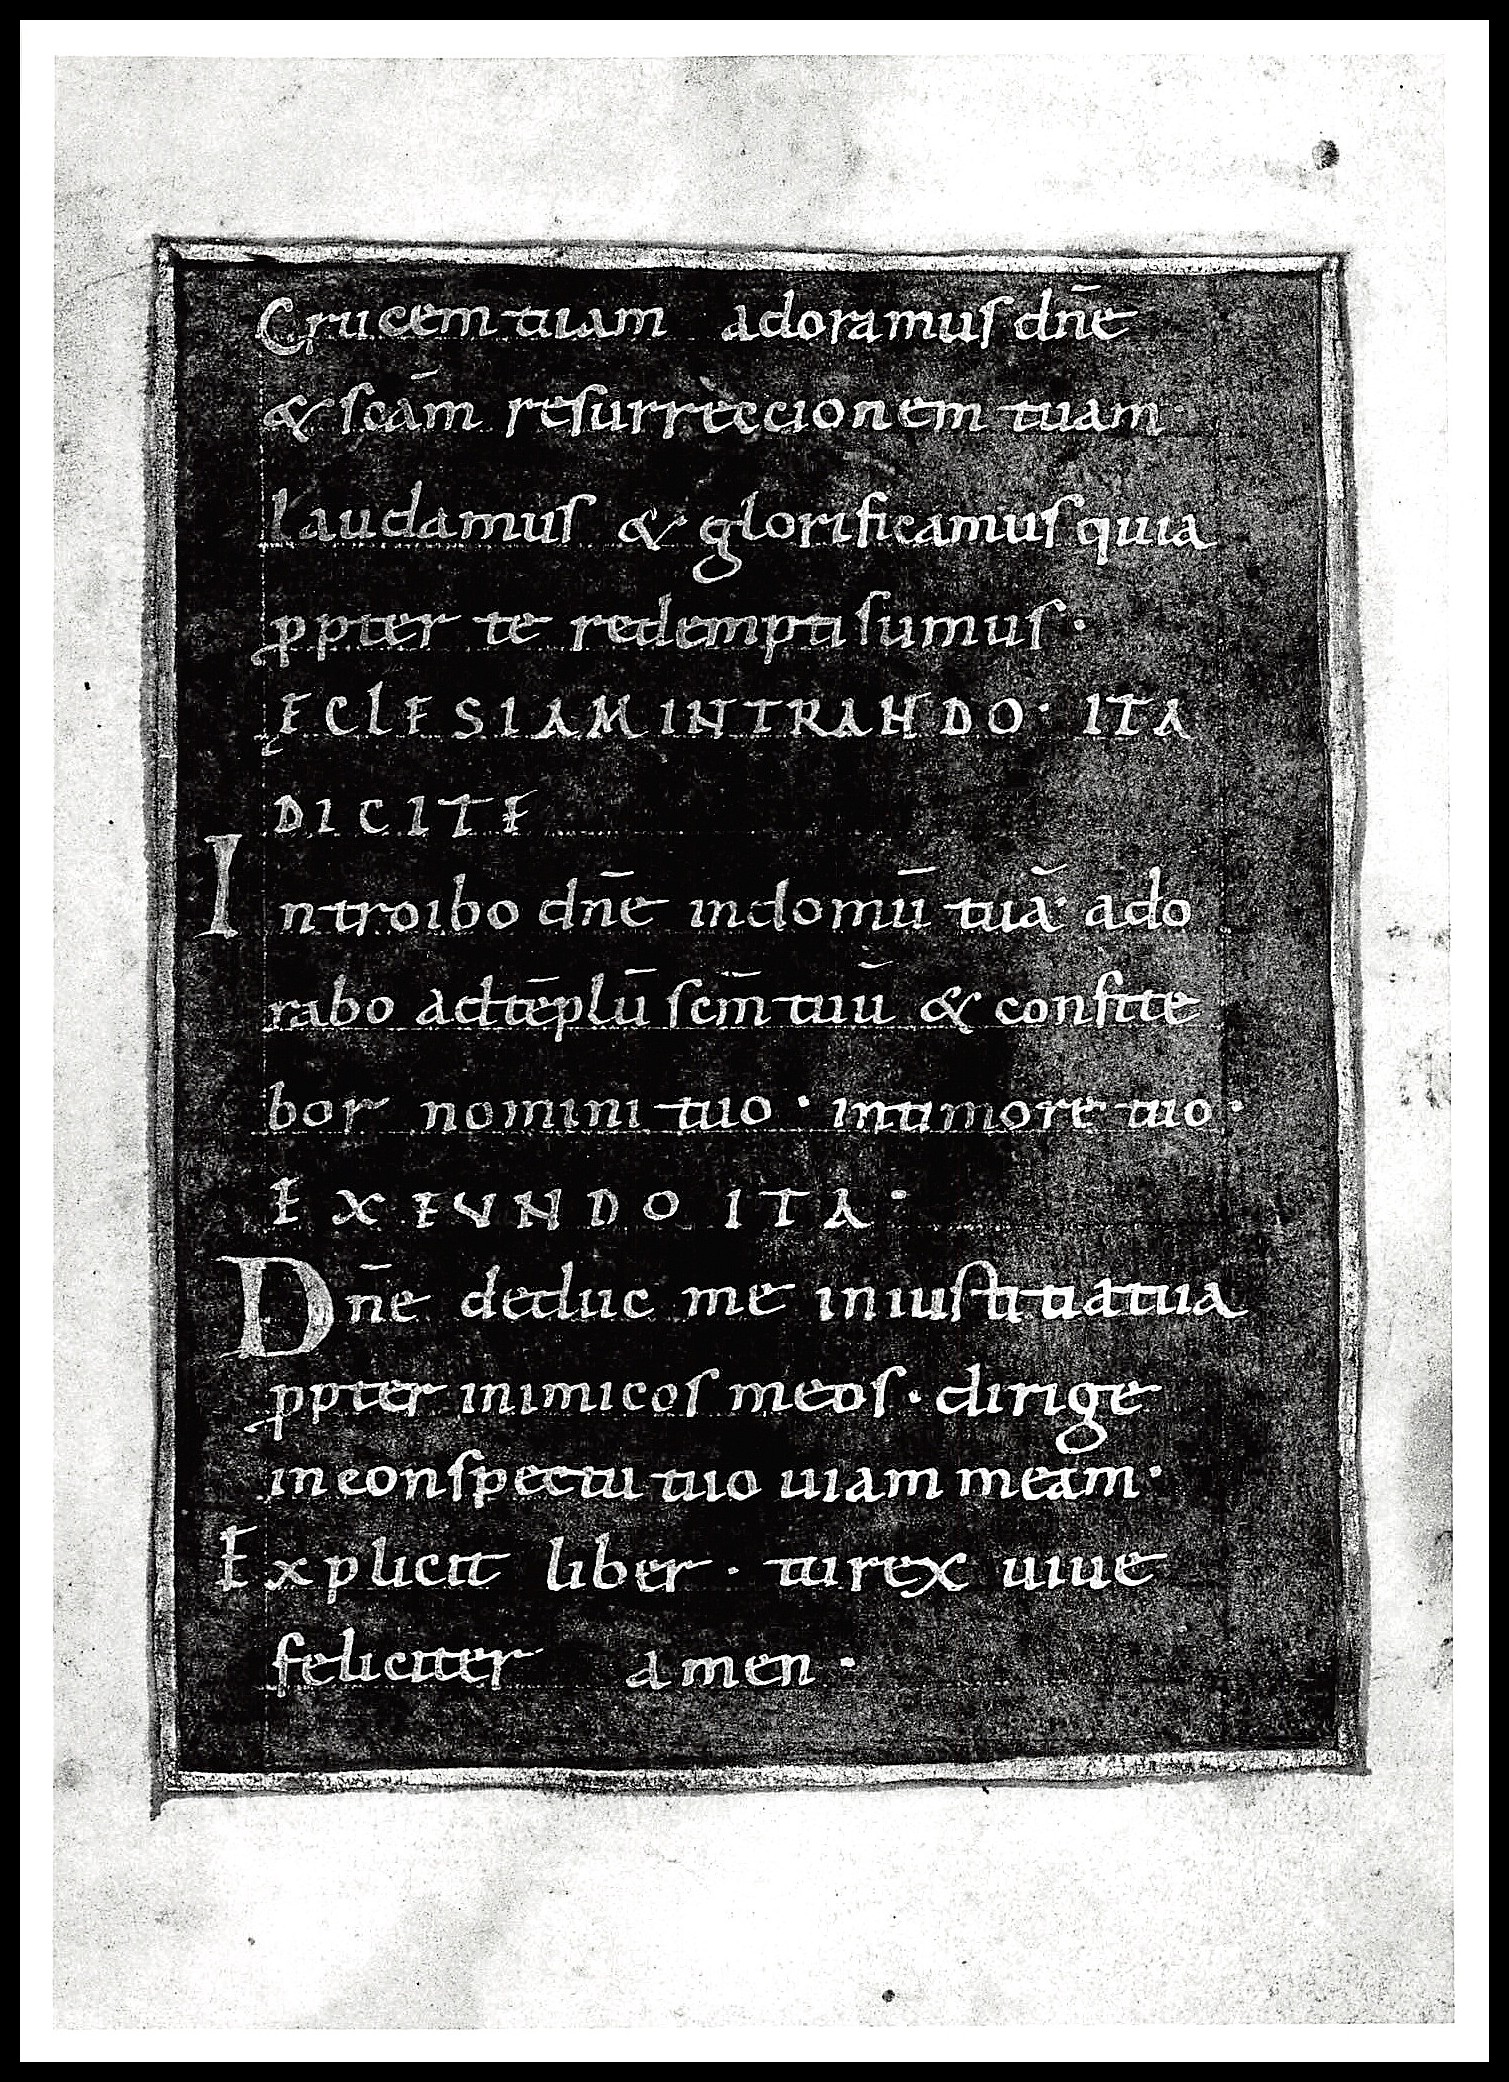 Crucem tuam adoramus dnē
& scām resurreccionem tuam
laudamus & glorificamus quia
ꝓpter te redempti sumus·
ĘCLESIAM INTRANDO· ITA
DICITE
Introibo dnē in domū tuā· ado
rabo ad tēplū scm̄ tuū & confite
bor nomini tuo· in timore tuo·
EXEUNDO ITA·
Dn̄e deduc me in iustitia tua
ꝓpter inimicos meos· dirige
in conspectu tuo uiam meam·
Explicit liber· tu rex uiue
feliciter amen·